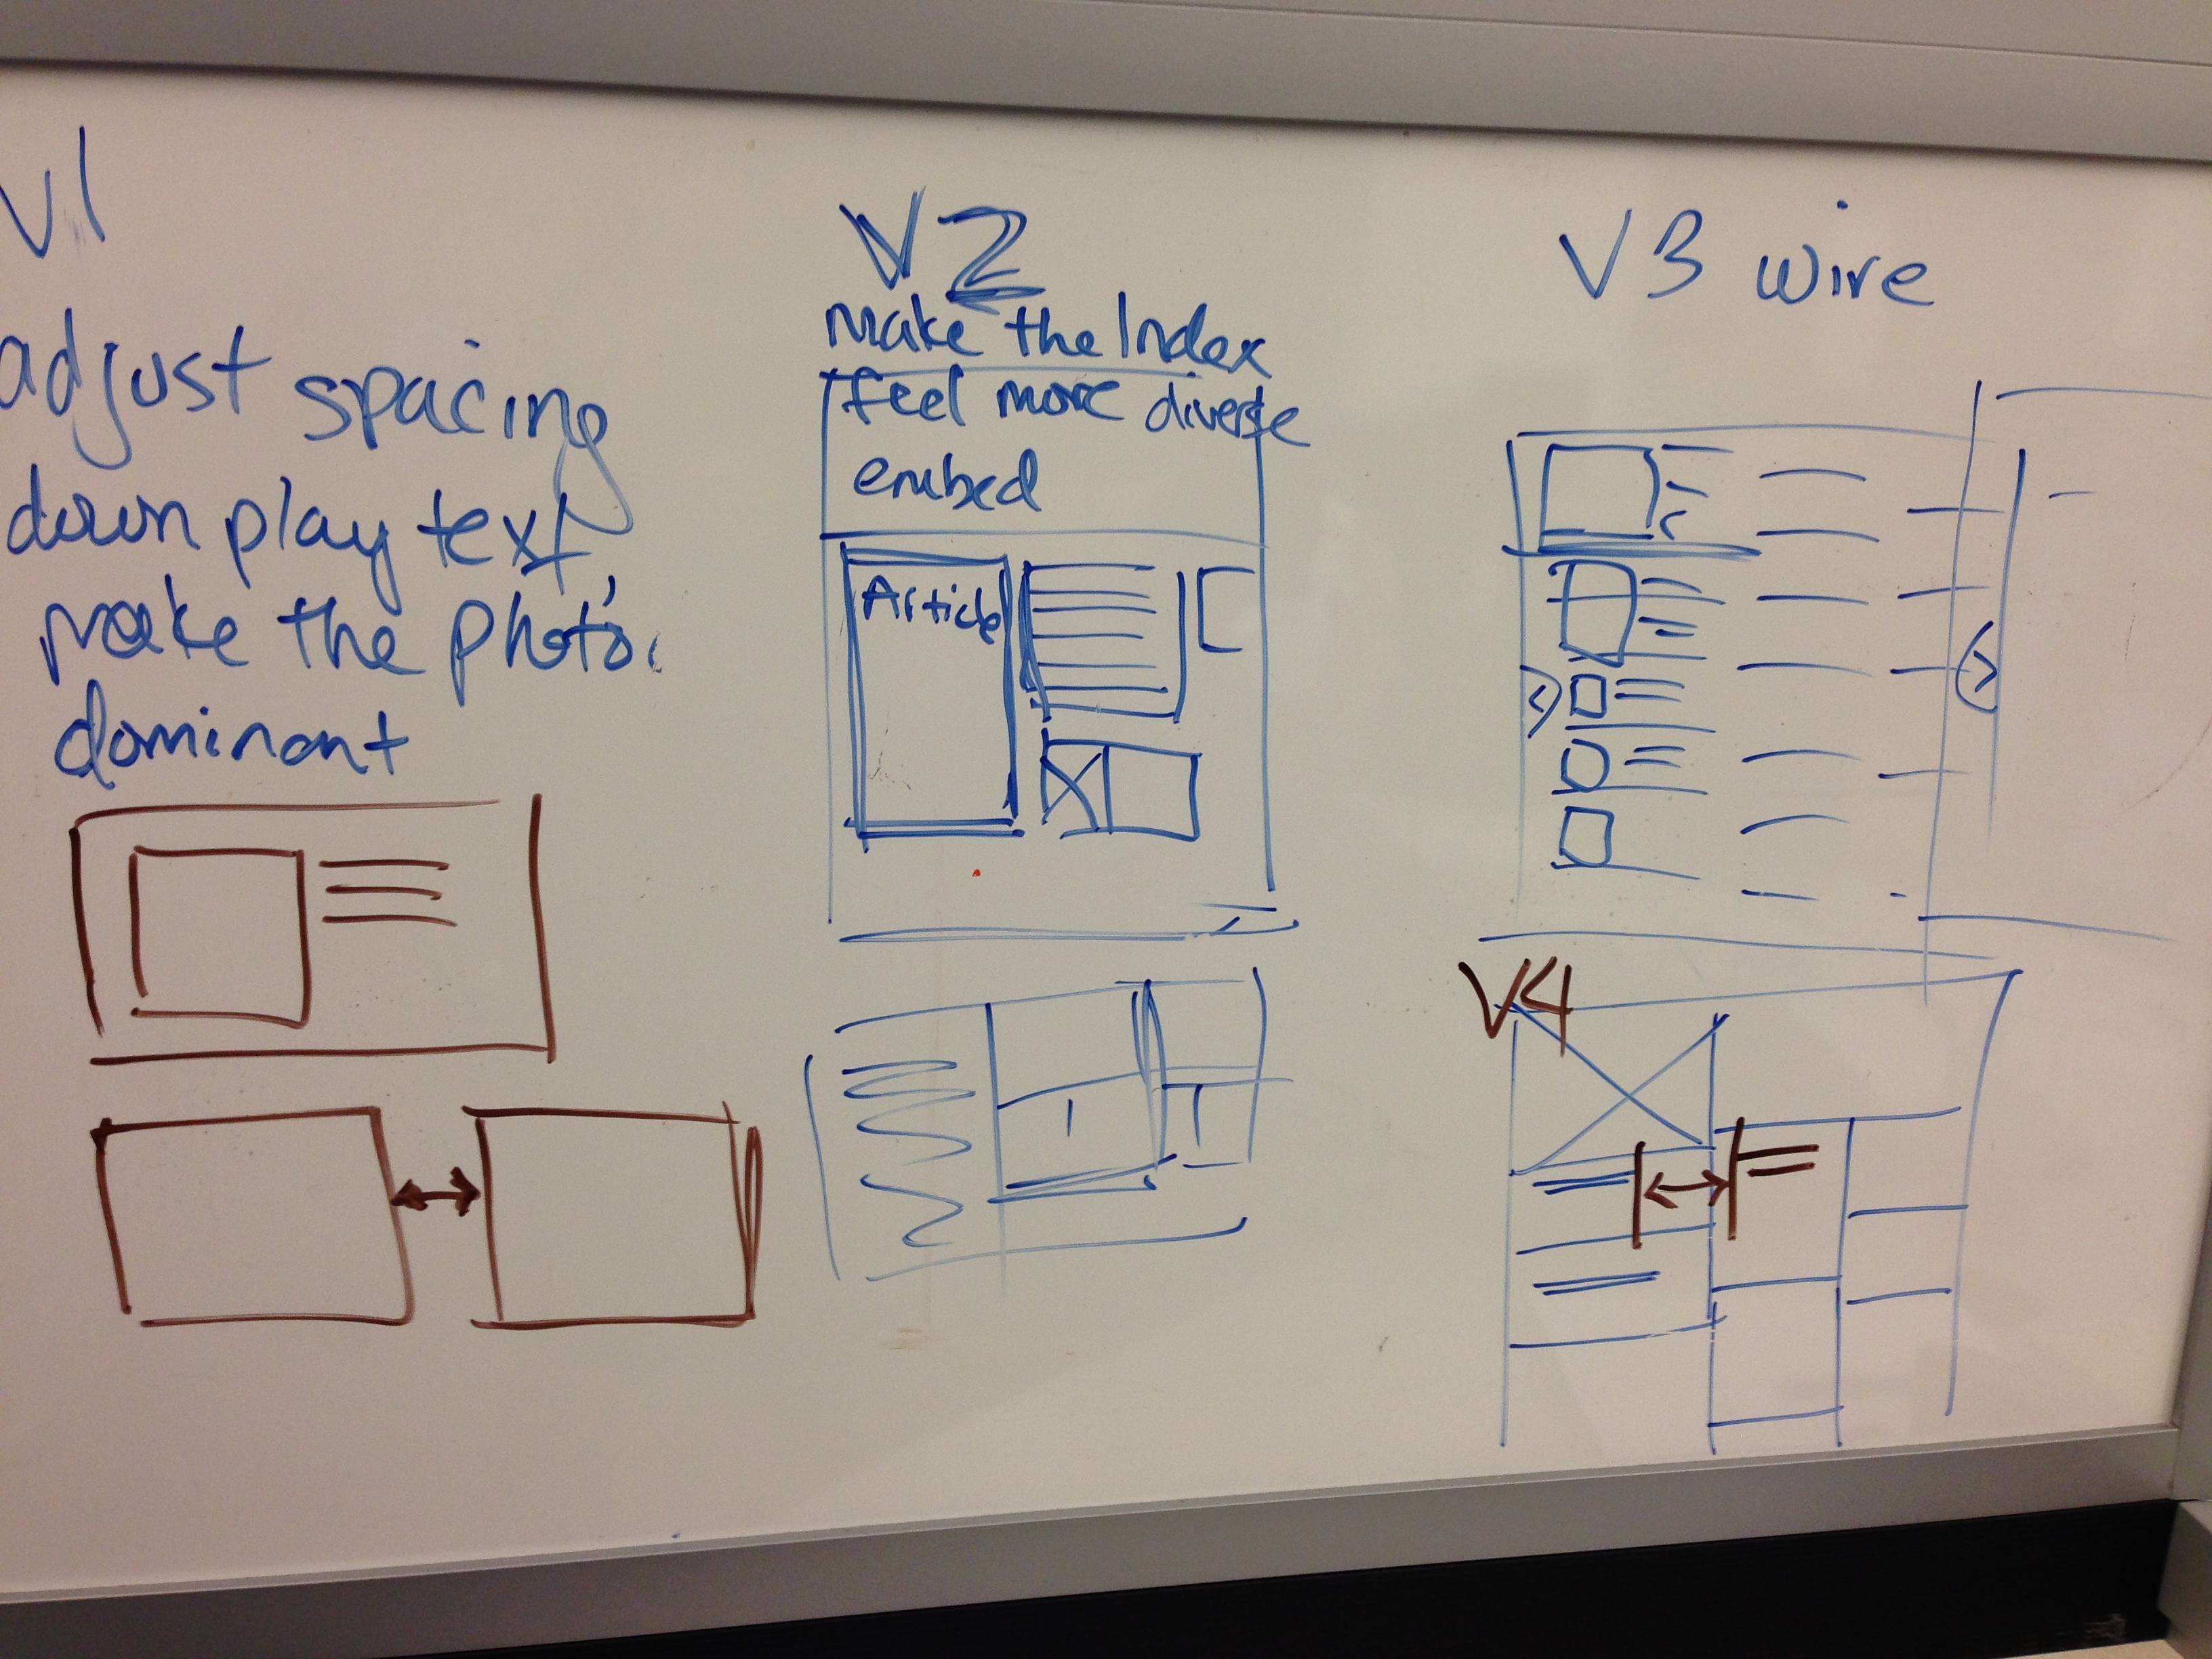 v1
adjust spacing
down play text,
make the photo's
dominant
V2
make the Index
feel more diverse
embed
Article
V3 wire
V4